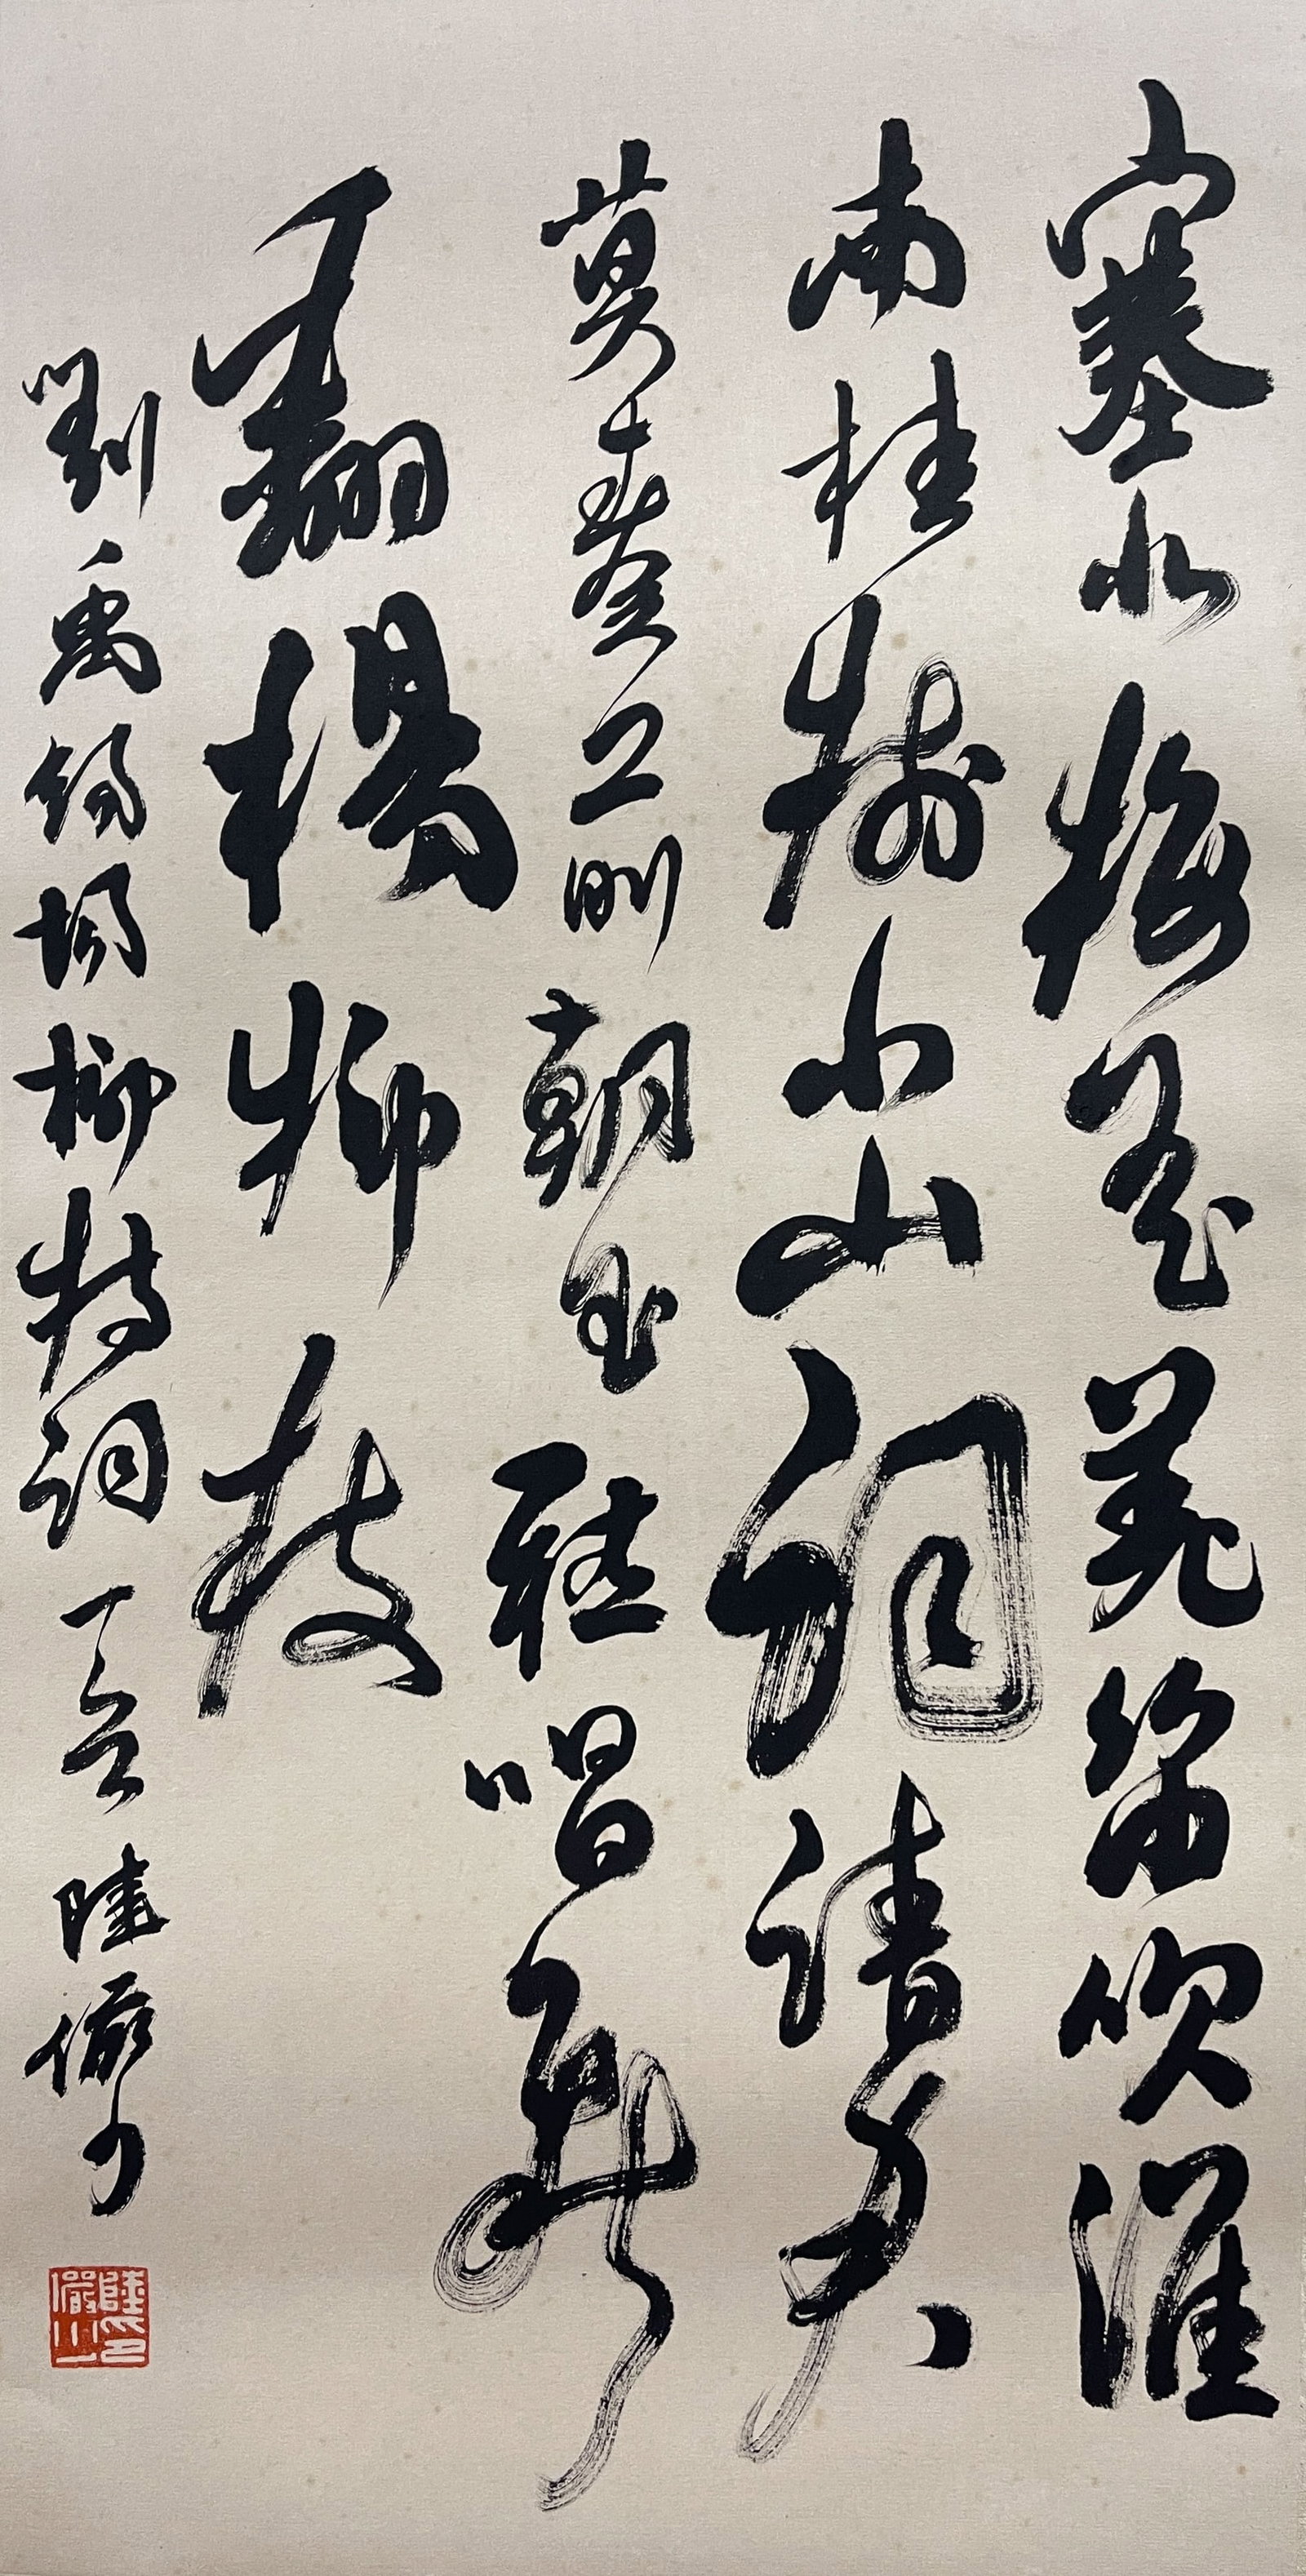 塞北梅花羌笛吹淮
南桂樹小山詞請君
莫奏前朝曲聽唱新
翻楊柳枝
劉禹錫楊柳枝詞 陸儼少
陸印儼少